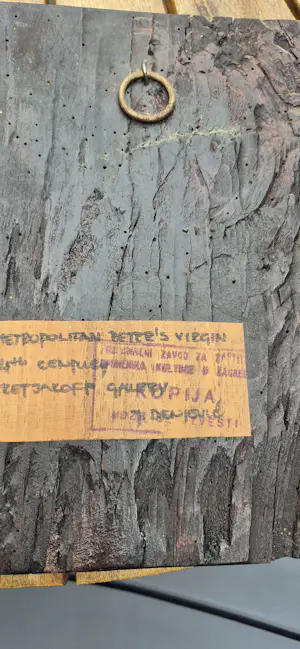 METROPOLITAN PETER'S VIRGIN
4TH CENTURY
RETJAKOFF GALLERY
REGIONALNI ZAVOD ZA ZAŠTIT
SPOMENIKA KULTURE U ZAGREB
KOPIJA
IZVESTI